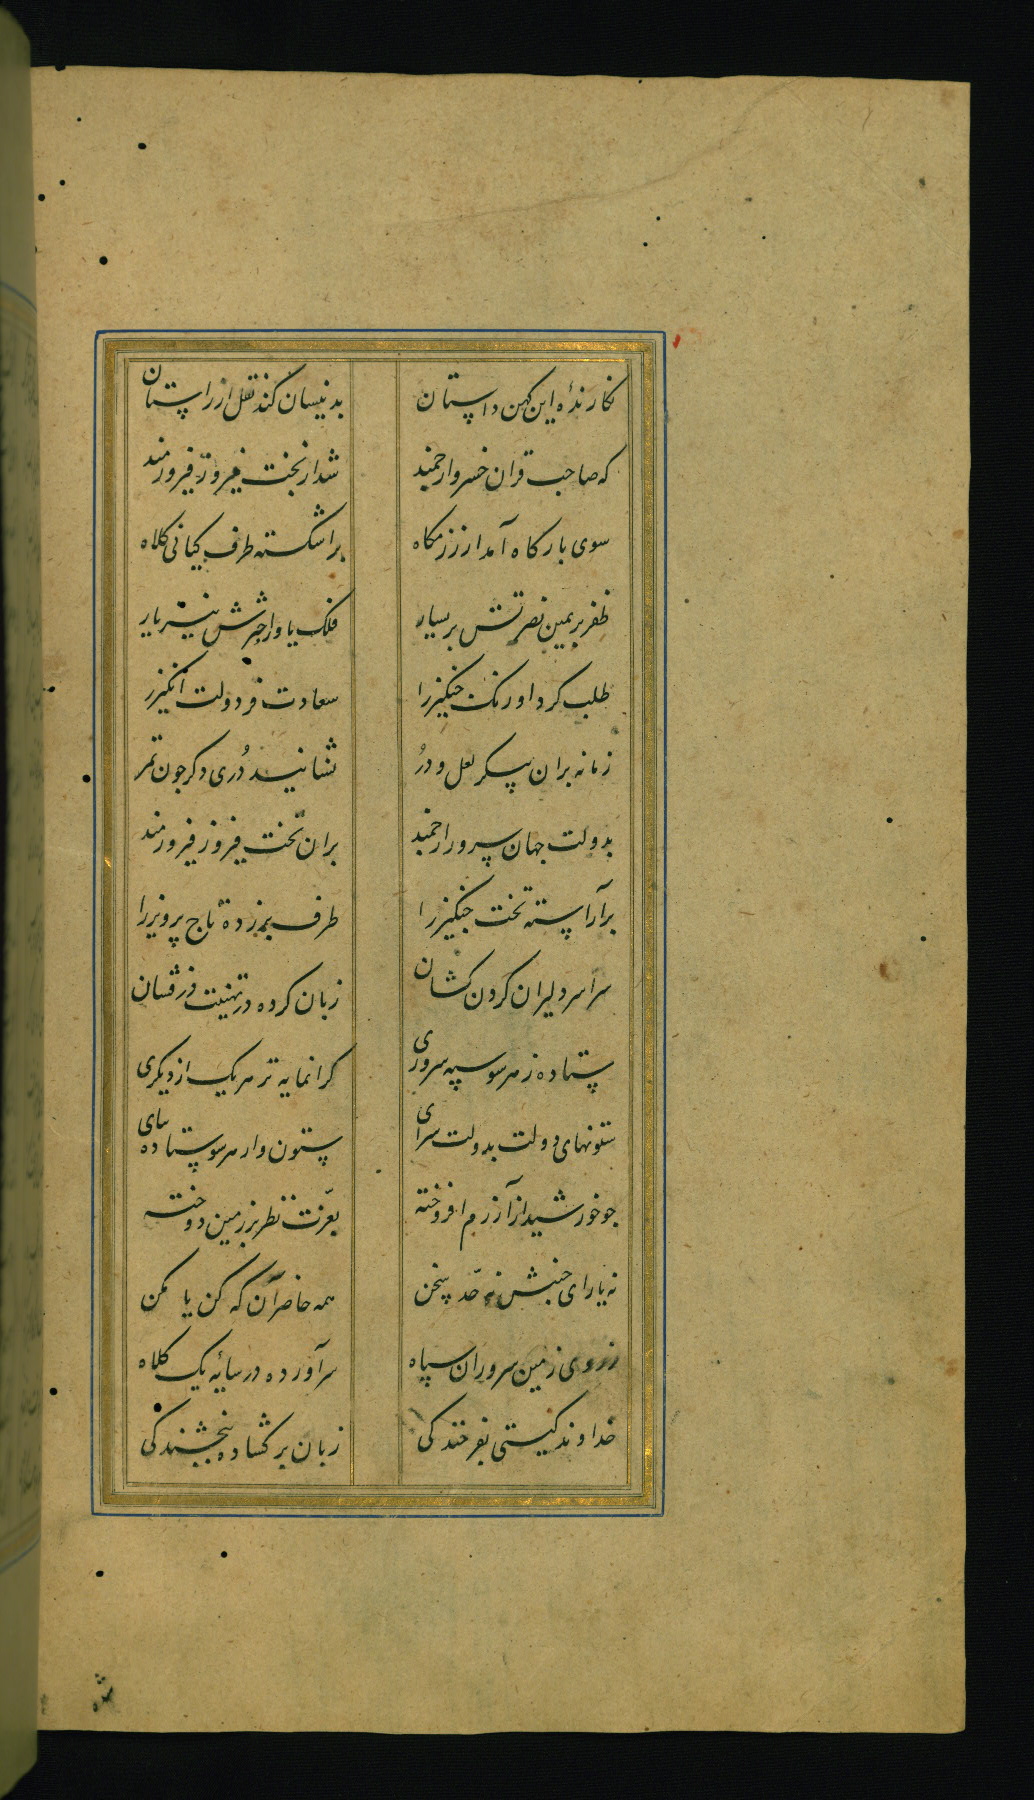 نکارندهٔ این کهن داستان بدنیسان کند نقل از راستان
که صاحب قران خسرو ارجمند شد از بخت فیروز فیروزمند
سوی بارکاه آمد از رزمکاه براشکسته طرف کیانی کلاه
ظفر بر یمین نصرتش بر یسار فلک یاور اخترش نیز یار
طلب کرد اورنک جنکیز را سعادت فر دولت انکیز را
زمانه بران پیکر لعل و دُر نشانیند دُری دکر جون تمر
بدولت جهان سرور ارجمند بران تخت فیروز فیروزمند
برآراسته تخت جنکیز را طرف بر زده تاج پرویز را
سراسر دلیران کردن کشان زبان کرده در تهنیت درفشان
ستاده ز هر سو سپه سروری کرانمایه تر هر یک از دیکری
ستونهای دولت بدولت سرای ستون وار هر سو ستاده بپای
جو خورشید از آزرم افروخته بعزّت نظر بر زمین دوخته
نه یارای جنبش نه حدّ سخن همه حاضر آن که کن یا مکن
ز روی زمین سروران سپاه سر آورده در سایهٔ یک کلاه
خداوند کیتی بفرخندکی زبان بر کشاده ببخشندکی